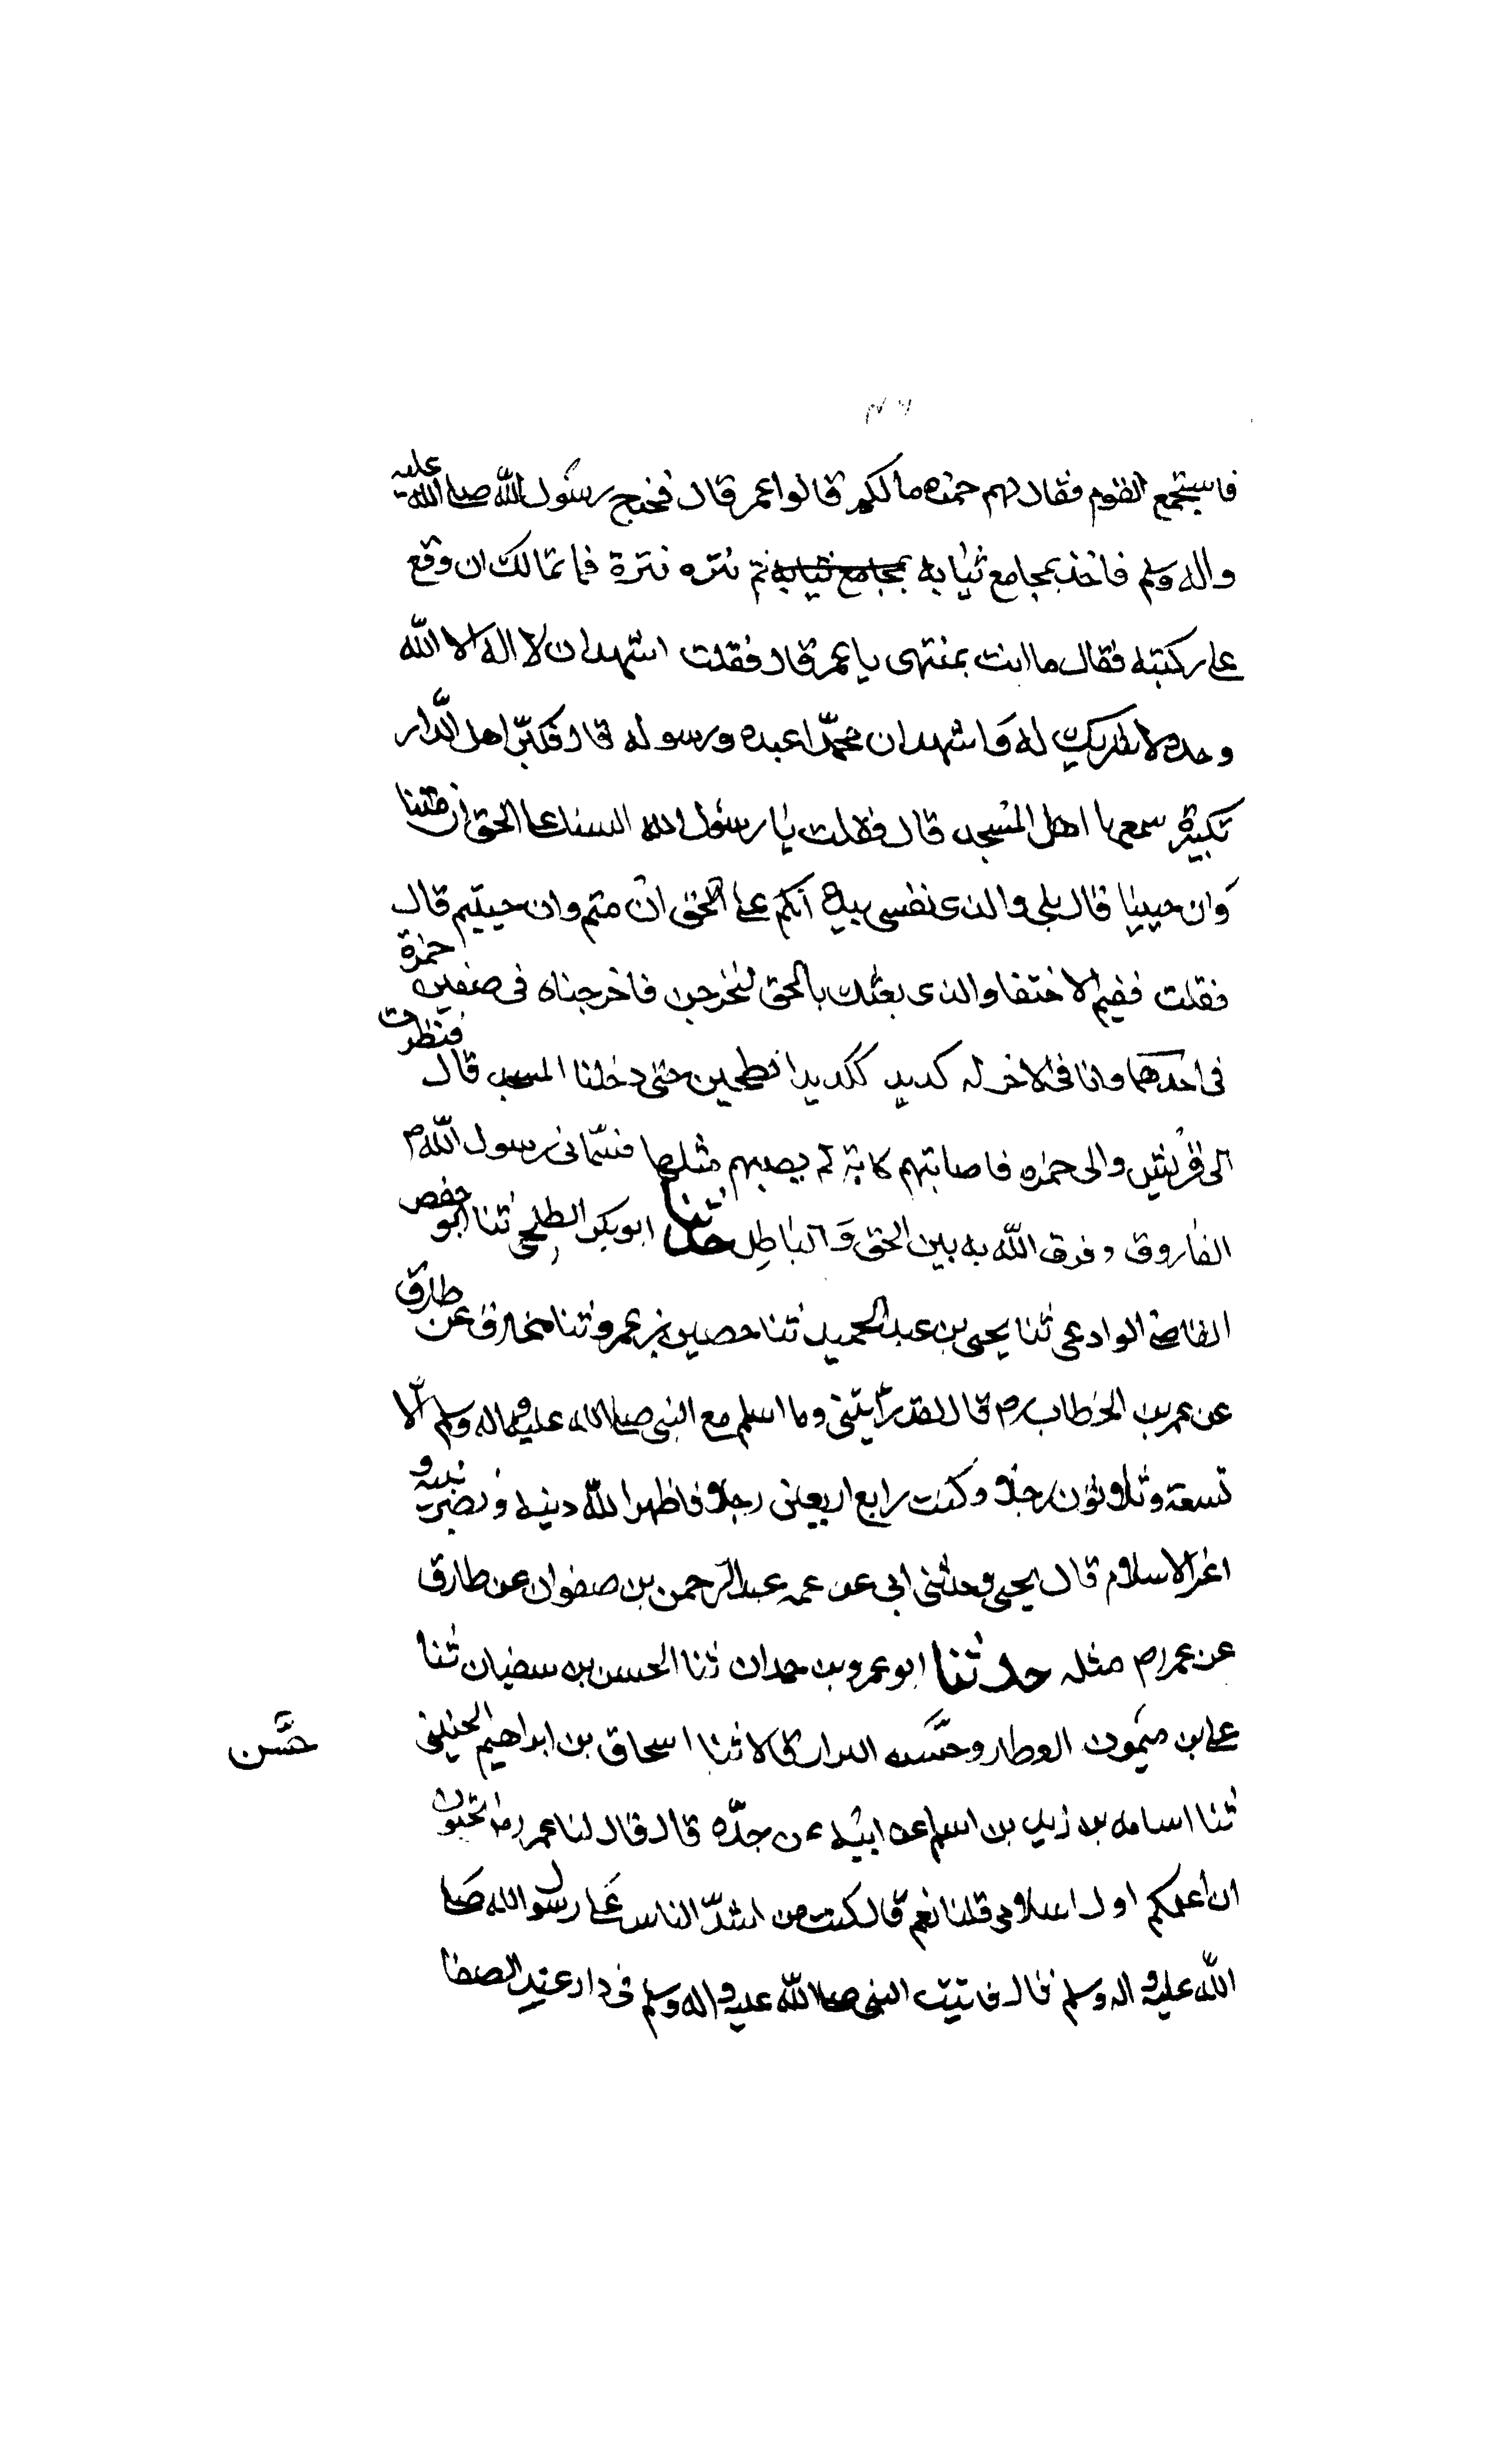 فاستجمع القوم فقال لهم حمزه مالكم قالوا عمر قال فخرج رسول الله صلى الله عليه
واله وسلم فاخذ بمجامع ثيابه بمجامع ثيابه ثم نتره نترة فما تمالك ان وقع
على ركبته فقال ما انت بمنتهى يا عمر قال فقلت اشهد ان لا اله الا الله
وحده لا شريك له وَاشهد ان محمّدا عبده ورسوله قال فكبّر اهل الدّار
تكبيرة سمعها اهل المسجد قال فقلت يا رسول الله السنا على الحق ان متنا
وَان حيينا قال بلى والذى نفسى بيده انكم على الحق ان متم وان حييتم قال
فقلت ففيم الاختفا والذى بعثك بالحق لنخرجن فاخرجناه فى صفين حمزة
فى احدهما وانا فى الاخر له كديد ككديد الطحين حتى دخلنا المسجد قال فنظرت
الى قريش والى حمزه فاصابتهم كابة لم يصبهم مثلها فسمّانى رسول الله م
الفاروق وفرق الله به بين الحق وَالباطِل حدثنا ابو بكر الطلحى ثنا ابو حفص
القاضى الوادعى ثنا يحيى بن عبد الحميد ثنا حصين بن عمرو ثنا مخارق عن طارق
عن عمر بن الخطاب رم قال لقد رأيتنى وما اسلم مع النبى صلى الله عليه واله وسلم الّا
تسعة وثلاثون رجلا وكنت رابع اربعين رجلا فاظهر الله دينه ونصر نبيه و
اعز الاسلام قال يحيى وحدثنى ابى عن عمه عبد الرحمن بن صفوان عن طارق
عن عمر رم مثله حدثنا ابو عمرو بن حمدان ثنا الحسن بن سفيان ثنا
على بن ميمون العطار وحسن البزار قالا ثنا اسحاق بن ابراهيم الحنينى
حسَّن
ثنا اسامه بن زيد بن اسلم عن ابيه عن جدّه قال قال لنا عمر رم اتحبون
ان اعلمكم اول اسلامى قلنا نعم قال كنت من اشدّ الناس عَلى رسول الله صَلى
الله عليه واله وسلم قال فاتيت النبى صلى الله عليه واله وسلم فى دار عند الصفا